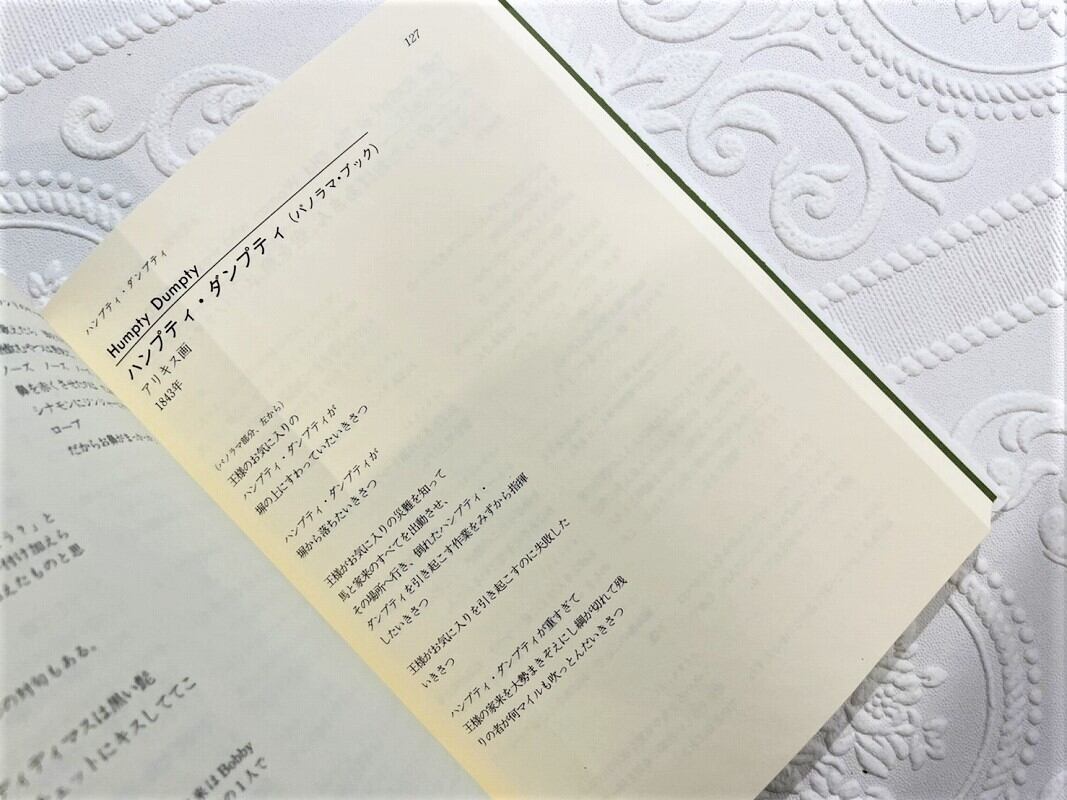 ーズ、ノーズ、ノーズ
鼻を赤くさせたのに
シナモンにジンジャー
ロープ
だからお鼻がまっかっか
う？」と
付け加えら
えたものと思
の対句もある。
ディディマスは黒い髭
チェットにキスしててこ
来は Bobby
の1人で
127
ハンプティ・ダンプティ
Humpty Dumpty
ハンプティ・ダンプティ（パノラマ・ブック）
アリキス画
1843年
（パノラマ部分、左から）
王様のお気に入りの
ハンプティ・ダンプティが
塀の上にすわっていたいきさつ
ハンプティ・ダンプティが
塀から落ちたいきさつ
王様がお気に入りの災難を知って
馬と家来のすべてを出動させ、
その場所へ行き、倒れたハンプティ・
ダンプティを引き起こす作業をみずから指揮
したいきさつ
王様がお気に入りを引き起こすのに失敗した
いきさつ
ハンプティ・ダンプティが重すぎて
王様の家来を大勢まきぞえにし綱が切れて残
りの者が何マイルも吹っとんだいきさつ